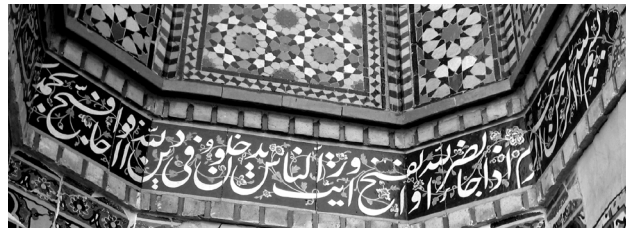 بسم الله الرحمن الرحیم اذا جاء نصر الله والفتح ورایت الناس یدخلون فی دین الله افواجا فسبح بحمد